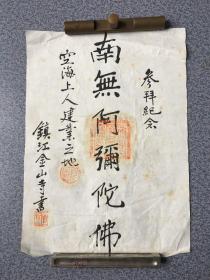 參拜紀念
南無阿彌陀佛
空海上人建業之地
鎮江金山寺書